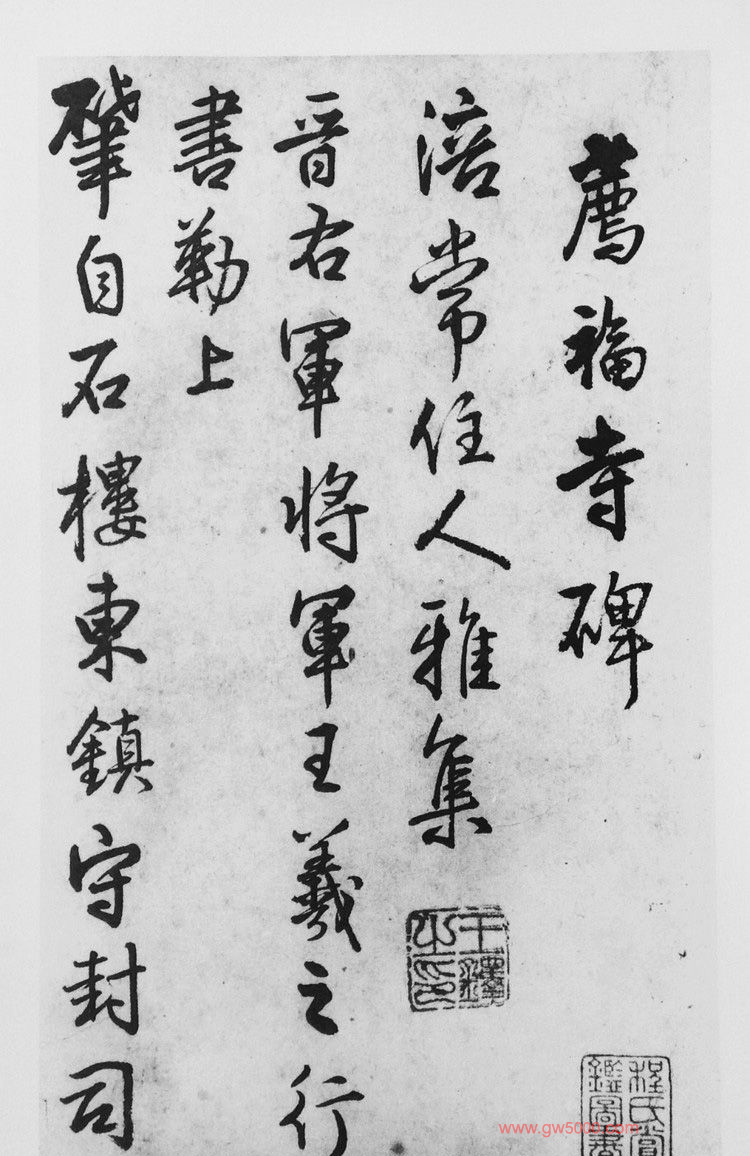 薦福寺碑
涪常住人雅集
晋右軍将軍王羲之行
書勒上
肇自石樓東鎮守封司
王鐸之印
程氏賞鑑圖書
www.gw5000.com